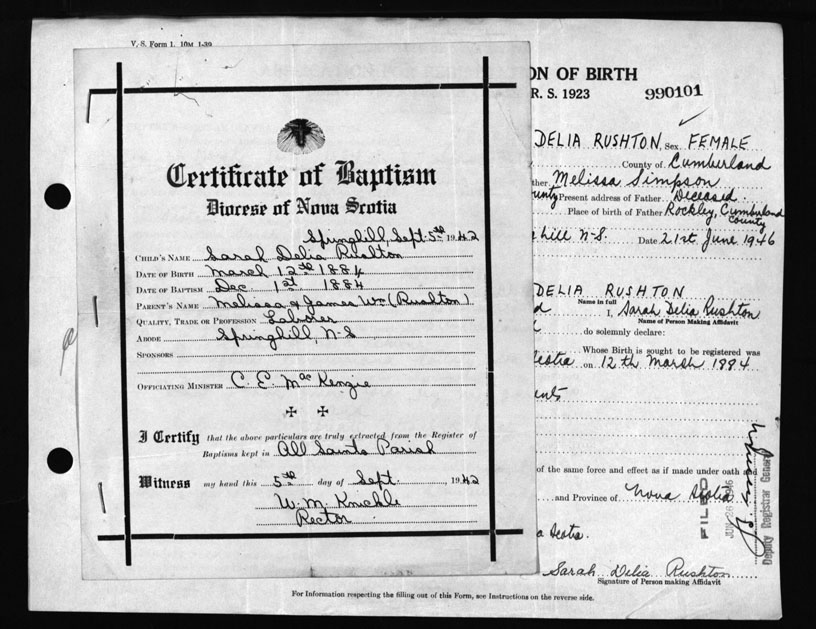 V. S. Form 1. 10M 1-39
Certificate of Baptism
Diocese of Nova Scotia
Springhill, Sept. 5th 1942
CHILD'S NAME Sarah Delia Rushton
DATE OF BIRTH March 12th 1884
DATE OF BAPTISM Dec. 1st 1884
PARENT'S NAME Melissa & James Wm (Rushton)
QUALITY, TRADE OR PROFESSION Laborer
ABODE Springhill, N-S
SPONSORS
OFFICIATING MINISTER C. E. MacKenzie
I Certify that the above particulars are truly extracted from the Register of
Baptisms kept in All Saints Parish
Witness my hand this 5th day of Sept. 1942
W. M. Knickle
Rector
ON OF BIRTH
R. S. 1923 990101
DELIA RUSHTON Sex FEMALE
County of Cumberland
ther Melissa Simpson
unty Present address of Father Deceased
Place of birth of Father Rockley, Cumberland County
hill N-S. Date 21st June 1946
DELIA RUSHTON
Name in full
I, Sarah Delia Rushton
Name of Person Making Affidavit
do solemnly declare:
Whose Birth is sought to be registered was
on 12th March 1884
of the same force and effect as if made under oath and
and Province of Nova Scotia
FILED JUN 26 1946
Deputy Registrar General
a Scotia.
Sarah Delia Rushton
Signature of Person making Affidavit
For Information respecting the filling out of this Form, see Instructions on the reverse side.